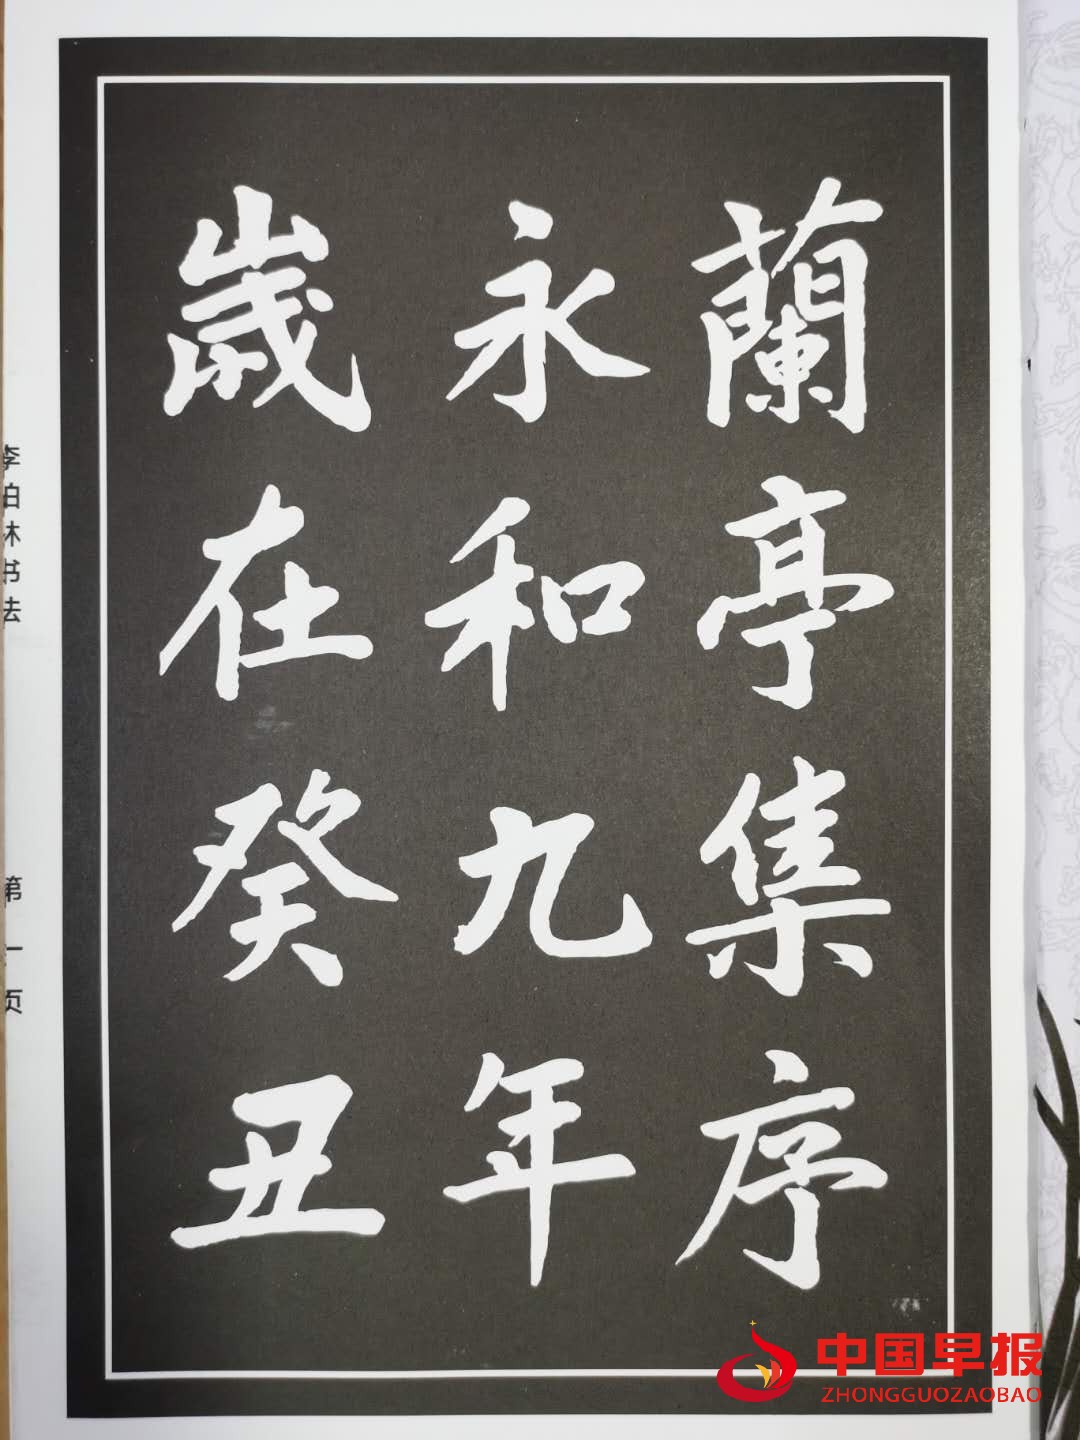 蘭亭集序
永和九年
歲在癸丑
李柏林书法
第一页
中国早报
ZHONGGUOZAOBAO